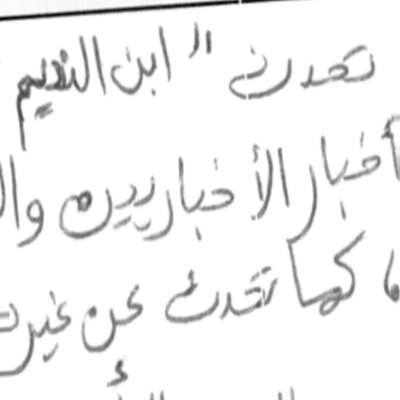 تحدث " ابن النديم
أخبار الأخباريين وال
كما تحدث عن غير